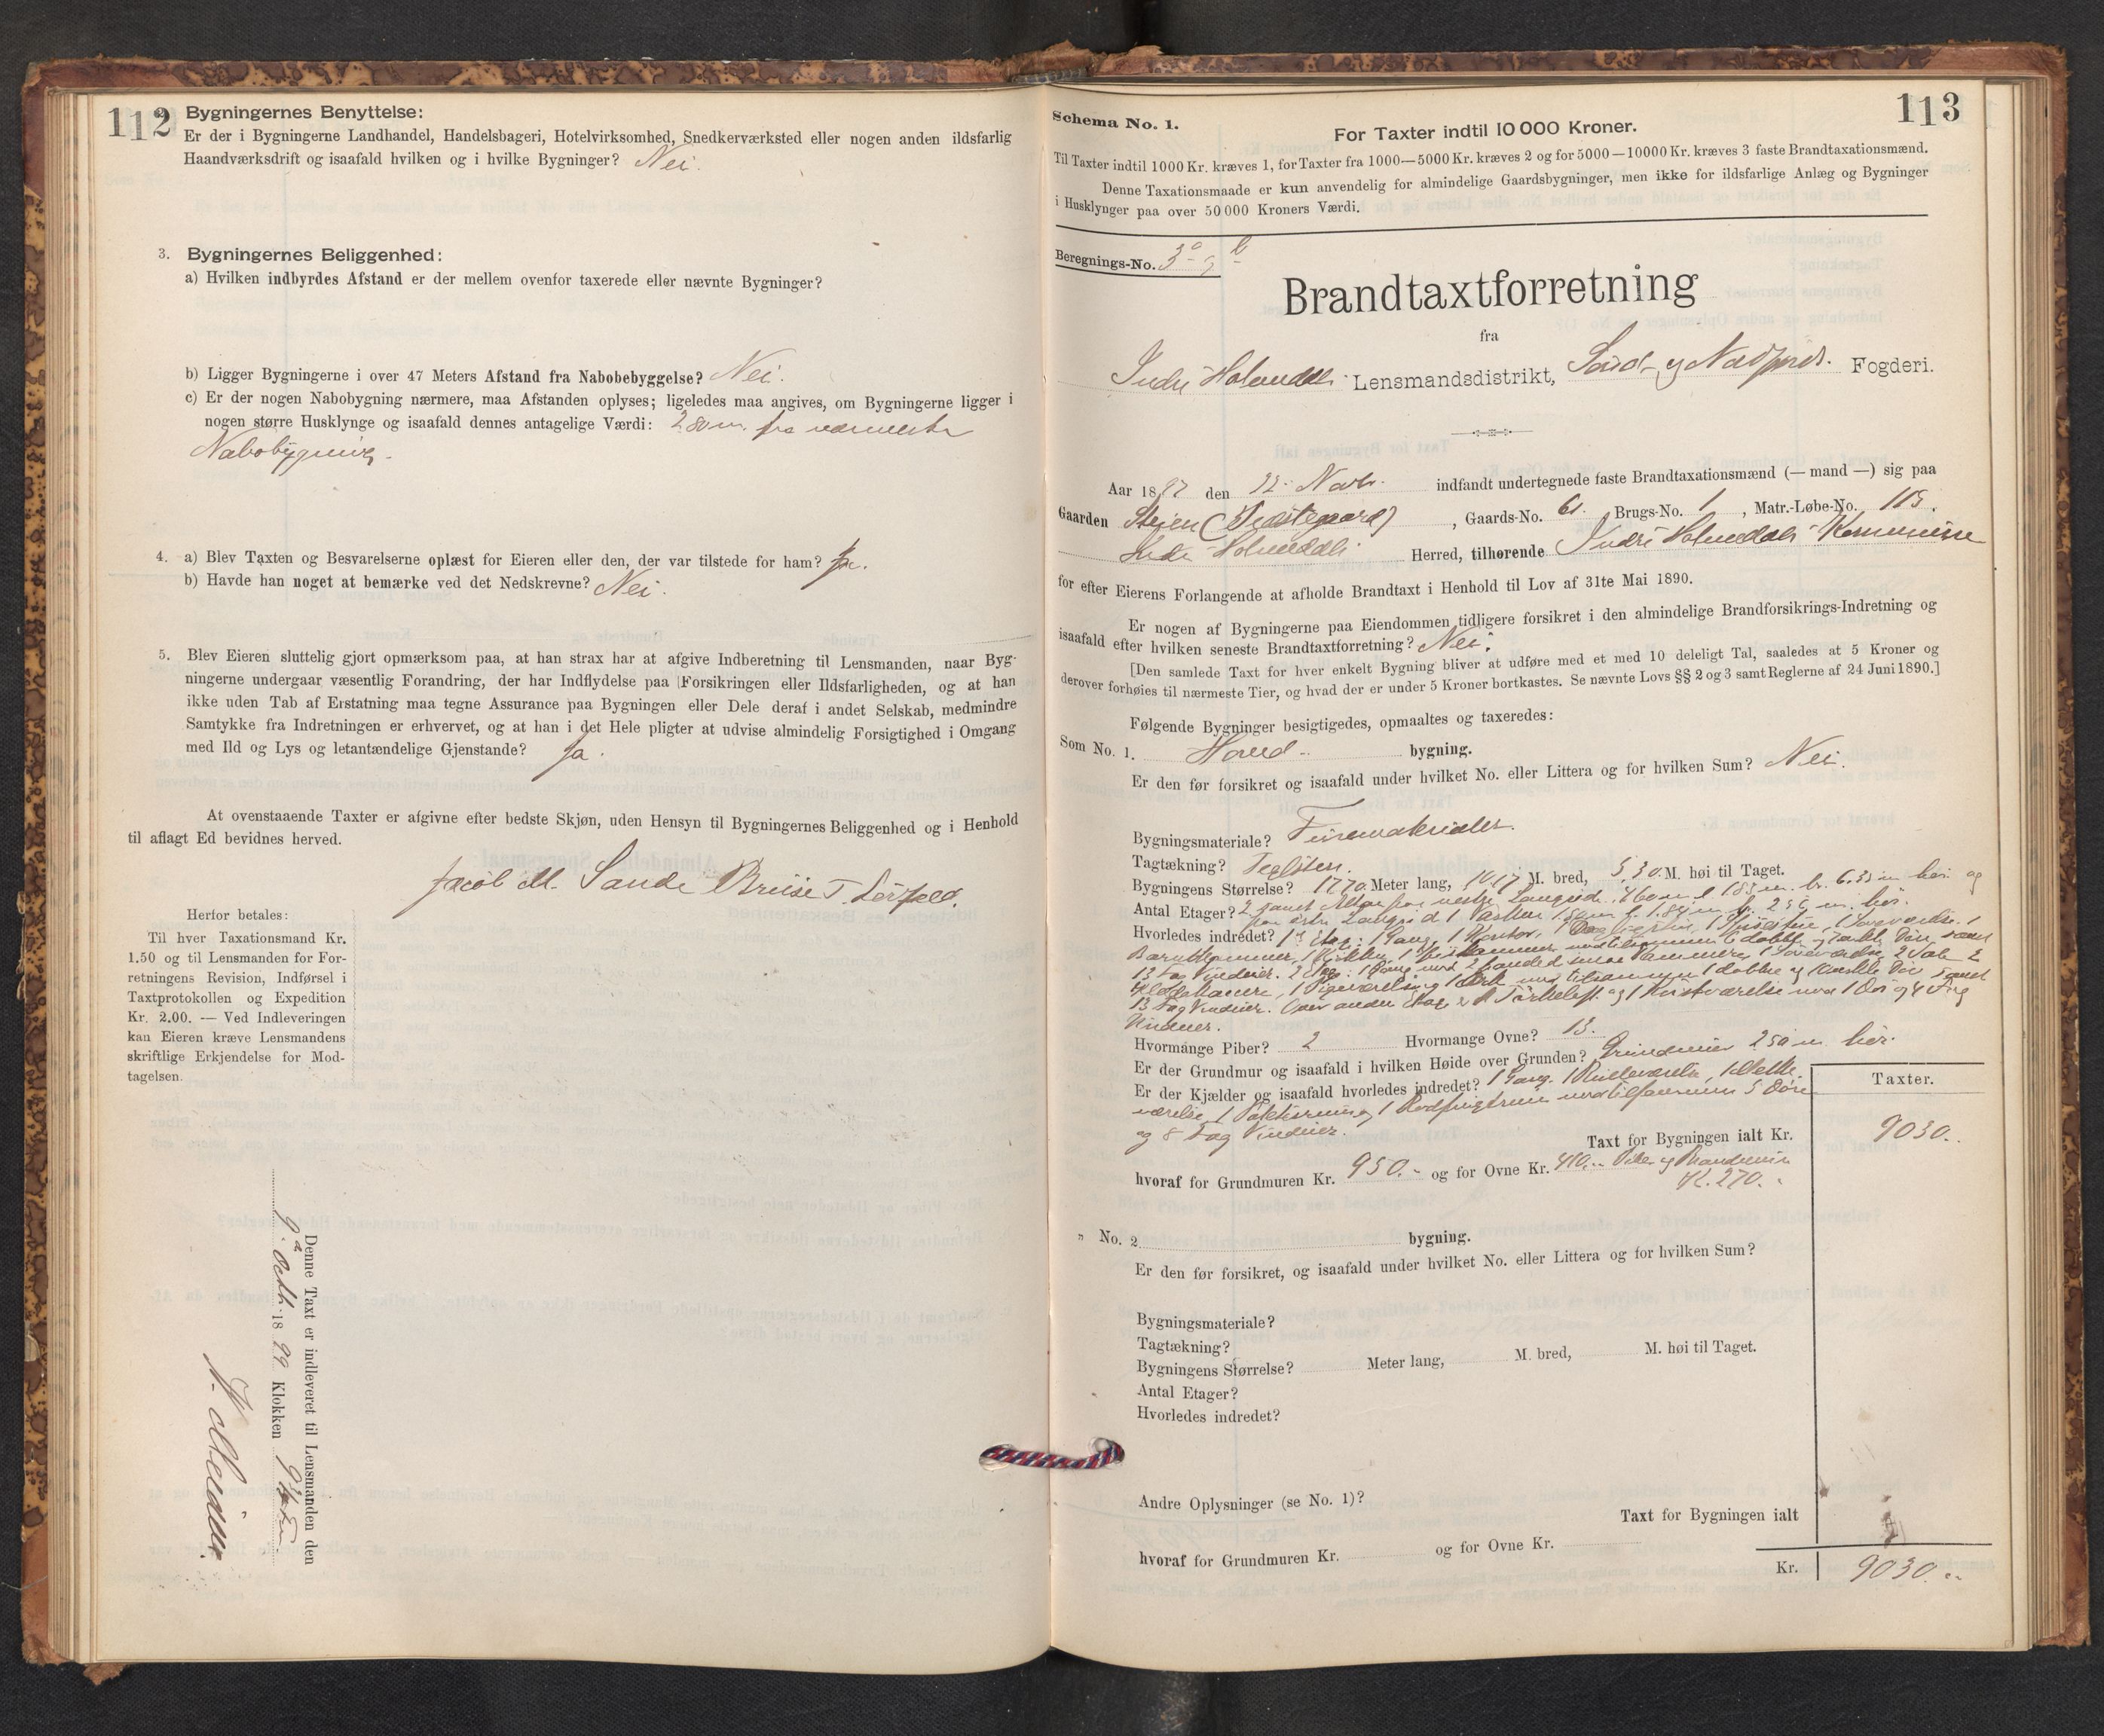 112
Bygningernes Benyttelse:
Er der i Bygningerne Landhandel, Handelsbageri, Hotelvirksomhed, Snedkerværksted eller nogen anden ildsfarlig
Haandværksdrift og isaafald hvilken og i hvilke Bygninger? Nei.
3. Bygningernes Beliggenhed:
a) Hvilken indbyrdes Afstand er der mellem ovenfor taxerede eller nævnte Bygninger?
b) Ligger Bygningerne i over 47 Meters Afstand fra Nabobebyggelse? Nei.
c) Er der nogen Nabobygning nærmere, maa Afstanden oplyses; ligeledes maa angives, om Bygningerne ligger i
nogen større Husklynge og isaafald dennes antagelige Værdi: fra nærmeste
Nabobygning.
4. a) Blev Taxten og Besvarelserne oplæst for Eieren eller den, der var tilstede for ham? Ja.
b) Havde han noget at bemærke ved det Nedskrevne? Nei.
5. Blev Eieren sluttelig gjort opmærksom paa, at han strax har at afgive Indberetning til Lensmanden, naar Byg-
ningerne undergaar væsentlig Forandring, der har Indflydelse paa Forsikringen eller Ildsfarligheden, og at han
ikke uden Tab af Erstatning maa tegne Assurance paa Bygningen eller Dele deraf i andet Selskab, medmindre
Samtykke fra Indretningen er erhvervet, og at han i det Hele pligter at udvise almindelig Forsigtighed i Omgang
med Ild og Lys og letantændelige Gjenstande? Ja.
At ovenstaaende Taxter er afgivne efter bedste Skjøn, uden Hensyn til Bygningernes Beliggenhed og i Henhold
til aflagt Ed bevidnes herved.
Jacob M. Sande
Herfor betales:
Til hver Taxationsmand Kr.
1.50 og til Lensmanden for For-
retningens Revision, Indførsel i
Taxtprotokollen og Expedition
Kr. 2.00. — Ved Indleveringen
kan Eieren kræve Lensmandens
skriftlige Erkjendelse for Mod-
tagelsen.
Denne Taxt er indleveret til Lensmanden den
9 Octb. 1899 Klokken 9
113
Schema No. 1.
For Taxter indtil 10 000 Kroner.
Til Taxter indtil 1000 Kr. kræves 1, for Taxter fra 1000—5000 Kr. kræves 2 og for 5000—10000 Kr. kræves 3 faste Brandtaxationsmænd.
Denne Taxationsmaade er kun anvendelig for almindelige Gaardsbygninger, men ikke for ildsfarlige Anlæg og Bygninger
i Husklynger paa over 50 000 Kroners Værdi.
Beregnings-No. 3
Brandtaxtforretning
fra
Indre Holmedals Lensmandsdistrikt, Sønd- og Nordfjords Fogderi.
Aar 1897 den 12 Novbr. indfandt undertegnede faste Brandtaxationsmænd (— mand —) sig paa
Gaarden Steien (Prestegaard), Gaards-No. 61. Brugs-No. 1, Matr.-Løbe-No. 115.
Indre Holmedals Herred, tilhørende Indre Holmedals Kommune
for efter Eierens Forlangende at afholde Brandtaxt i Henhold til Lov af 31te Mai 1890.
Er nogen af Bygningerne paa Eiendommen tidligere forsikret i den almindelige Brandforsikrings-Indretning og
isaafald efter hvilken seneste Brandtaxtforretning? Nei.
[Den samlede Taxt for hver enkelt Bygning bliver at udføre med et med 10 deleligt Tal, saaledes at 5 Kroner og
derover forhøies til nærmeste Tier, og hvad der er under 5 Kroner bortkastes. Se nævnte Lovs §§ 2 og 3 samt Reglerne af 24 Juni 1890.]
Følgende Bygninger besigtigedes, opmaaltes og taxeredes:
Som No. 1. Hoved- bygning.
Er den før forsikret og isaafald under hvilket No. eller Littera og for hvilken Sum? Nei.
Bygningsmateriale? Furumaterialer.
Tagtækning? Teglsten.
Bygningens Størrelse? 17.70 Meter lang, 10.17 M. bred, 5,30 M. høi til Taget.
Antal Etager? 2 samt Altan paa vestre Langside, 4.60 m. l. 1.83 m. br. 6.35 m. høi og
paa østre Langside 1 m. høi.
Hvorledes indredet? 1ste Etage: 1 Gang, 1 Kontor, 1 Dagligstue, 1 Spisestue, 1 Soveværelse, 1
Barnekammer, 1 Kjøkken, 1 Spiskammer med tilsammen 6 dobbl. og enkl. Døre samt
13 Fag Vinduer. 2 Etage: 1 Gang med
13 Fag Vinduer. Over anden Etage er Tørkeloft og 1 Kvistværelse med 1 Dør og 4 Fag
Vinduer.
Hvormange Piber? 2 Hvormange Ovne? 13.
Er der Grundmur og isaafald i hvilken Høide over Grunden? Grundmur 2.50 m. høi.
Er der Kjælder og isaafald hvorledes indredet? 1 Gang, 1 Rulleværelse, 1 Melke-
værelse, 1 og 1 med tilsammen 5 Døre
og 8 Fag Vinduer.
Taxter.
Taxt for Bygningen ialt Kr. 9030.
hvoraf for Grundmuren Kr. 950.- og for Ovne Kr. 410.- Piber og Brandmur
Kr. 270.-
„ No. 2 bygning.
Er den før forsikret, og isaafald under hvilket No. eller Littera og for hvilken Sum?
Bygningsmateriale?
Tagtækning?
Bygningens Størrelse? Meter lang, M. bred, M. høi til Taget.
Antal Etager?
Hvorledes indredet?
Andre Oplysninger (se No. 1)?
Taxt for Bygningen ialt
hvoraf for Grundmuren Kr. og for Ovne Kr.
Kr. 9030.